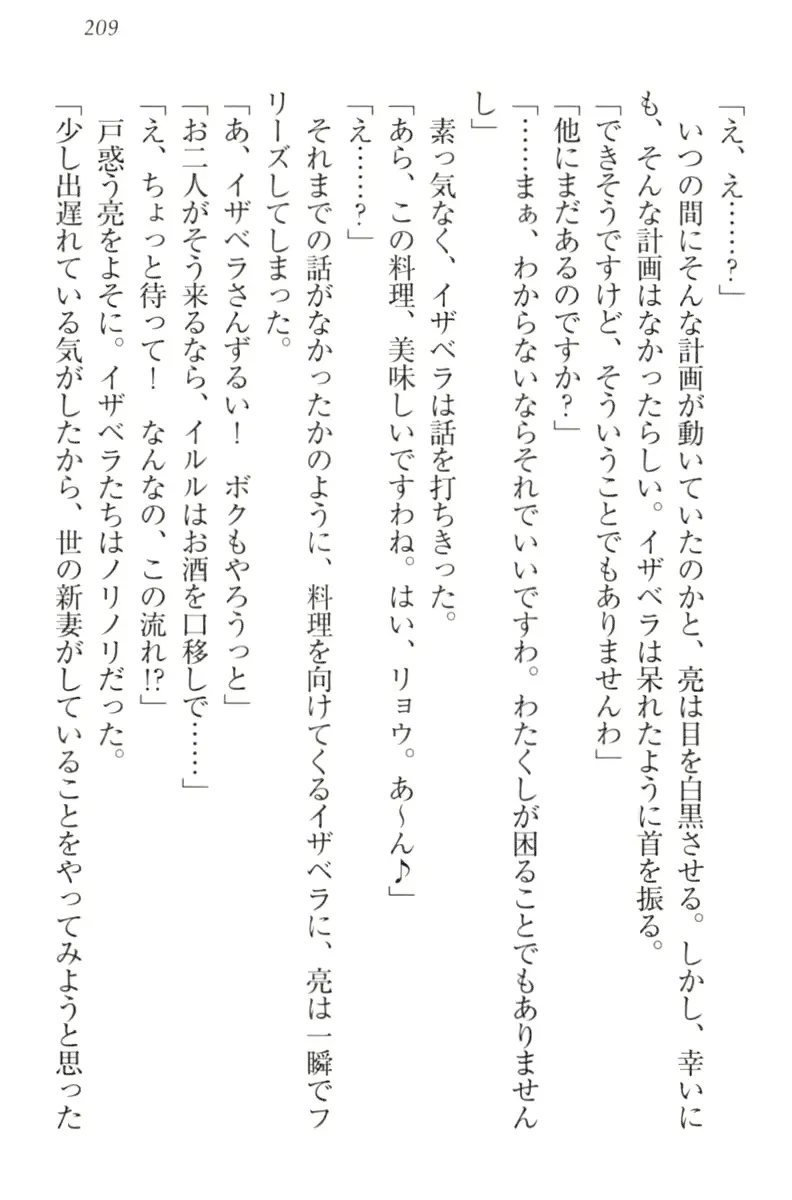 209
「え、え……？」
　いつの間にそんな計画が動いていたのかと、亮は目を白黒させる。しかし、幸いに
も、そんな計画はなかったらしい。イザベラは呆れたように首を振る。
「できそうですけど、そういうことでもありませんわ」
「他にまだあるのですか？」
「……まぁ、わからないならそれでいいですわ。わたくしが困ることでもありません
し」
　素っ気なく、イザベラは話を打ちきった。
「あら、この料理、美味しいですわね。はい、リョウ。あ〜ん♪」
「え……？」
　それまでの話がなかったかのように、料理を向けてくるイザベラに、亮は一瞬でフ
リーズしてしまった。
「あ、イザベラさんずるい！　ボクもやろうっと」
「お二人がそう来るなら、イルルはお酒を口移しで……」
「え、ちょっと待って！　なんなの、この流れ!?」
　戸惑う亮をよそに。イザベラたちはノリノリだった。
「少し出遅れている気がしたから、世の新妻がしていることをやってみようと思った